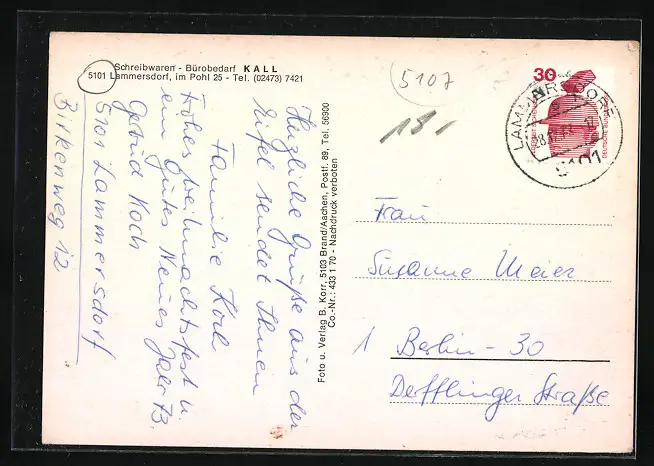 Schreibwaren - Bürobedarf KALL
5101 Lammersdorf, im Pohl 25 - Tel. (02473) 7421
Herzliche Grüße aus der
Eifel sendet Ihnen
Familie Koch
Frohes Weihnachtsfest u.
ein gutes Neues Jahr 73.
Gertrud Koch
5101 Lammersdorf
Birkenweg 12
Foto u. Verlag B. Korr, 5103 Brand/Aachen, Postf. 89, Tel. 56900
Co.-Nr.: 433 1 70 - Nachdruck verboten
5107
30
LAMMERSDORF
5101
DEUTSCHE BUNDESPOST
Frau
Susanne Meier
1 Berlin-30
Derfflinger Straße